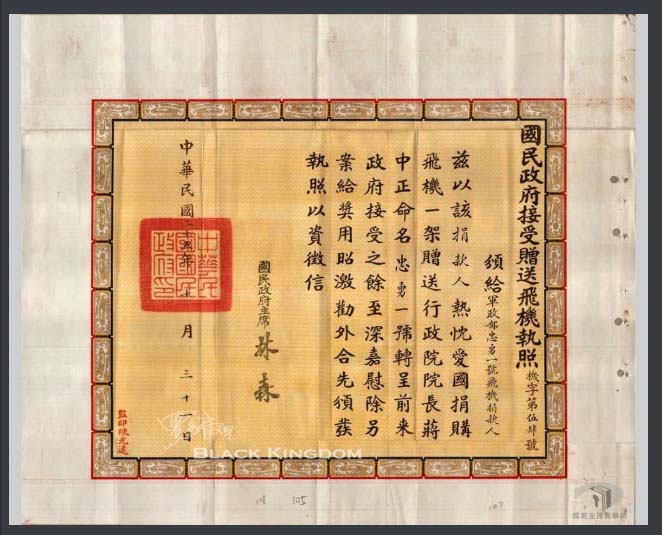 國民政府接受贈送飛機執照 機字第伍肆號
頒給軍政部忠勇一號飛機捐款人
茲以該捐款人熱忱愛國捐購
飛機一架贈送行政院院長蔣
中正命名忠勇一號轉呈前来
政府接受之餘至深嘉慰除另
案給奬用昭激勸外合先頒發
執照以資徵信
國民政府主席 林森
中華民國二十五年十月三十一日
中華民國政府印
監印陳光遠
BLACK KINGDOM
105
107